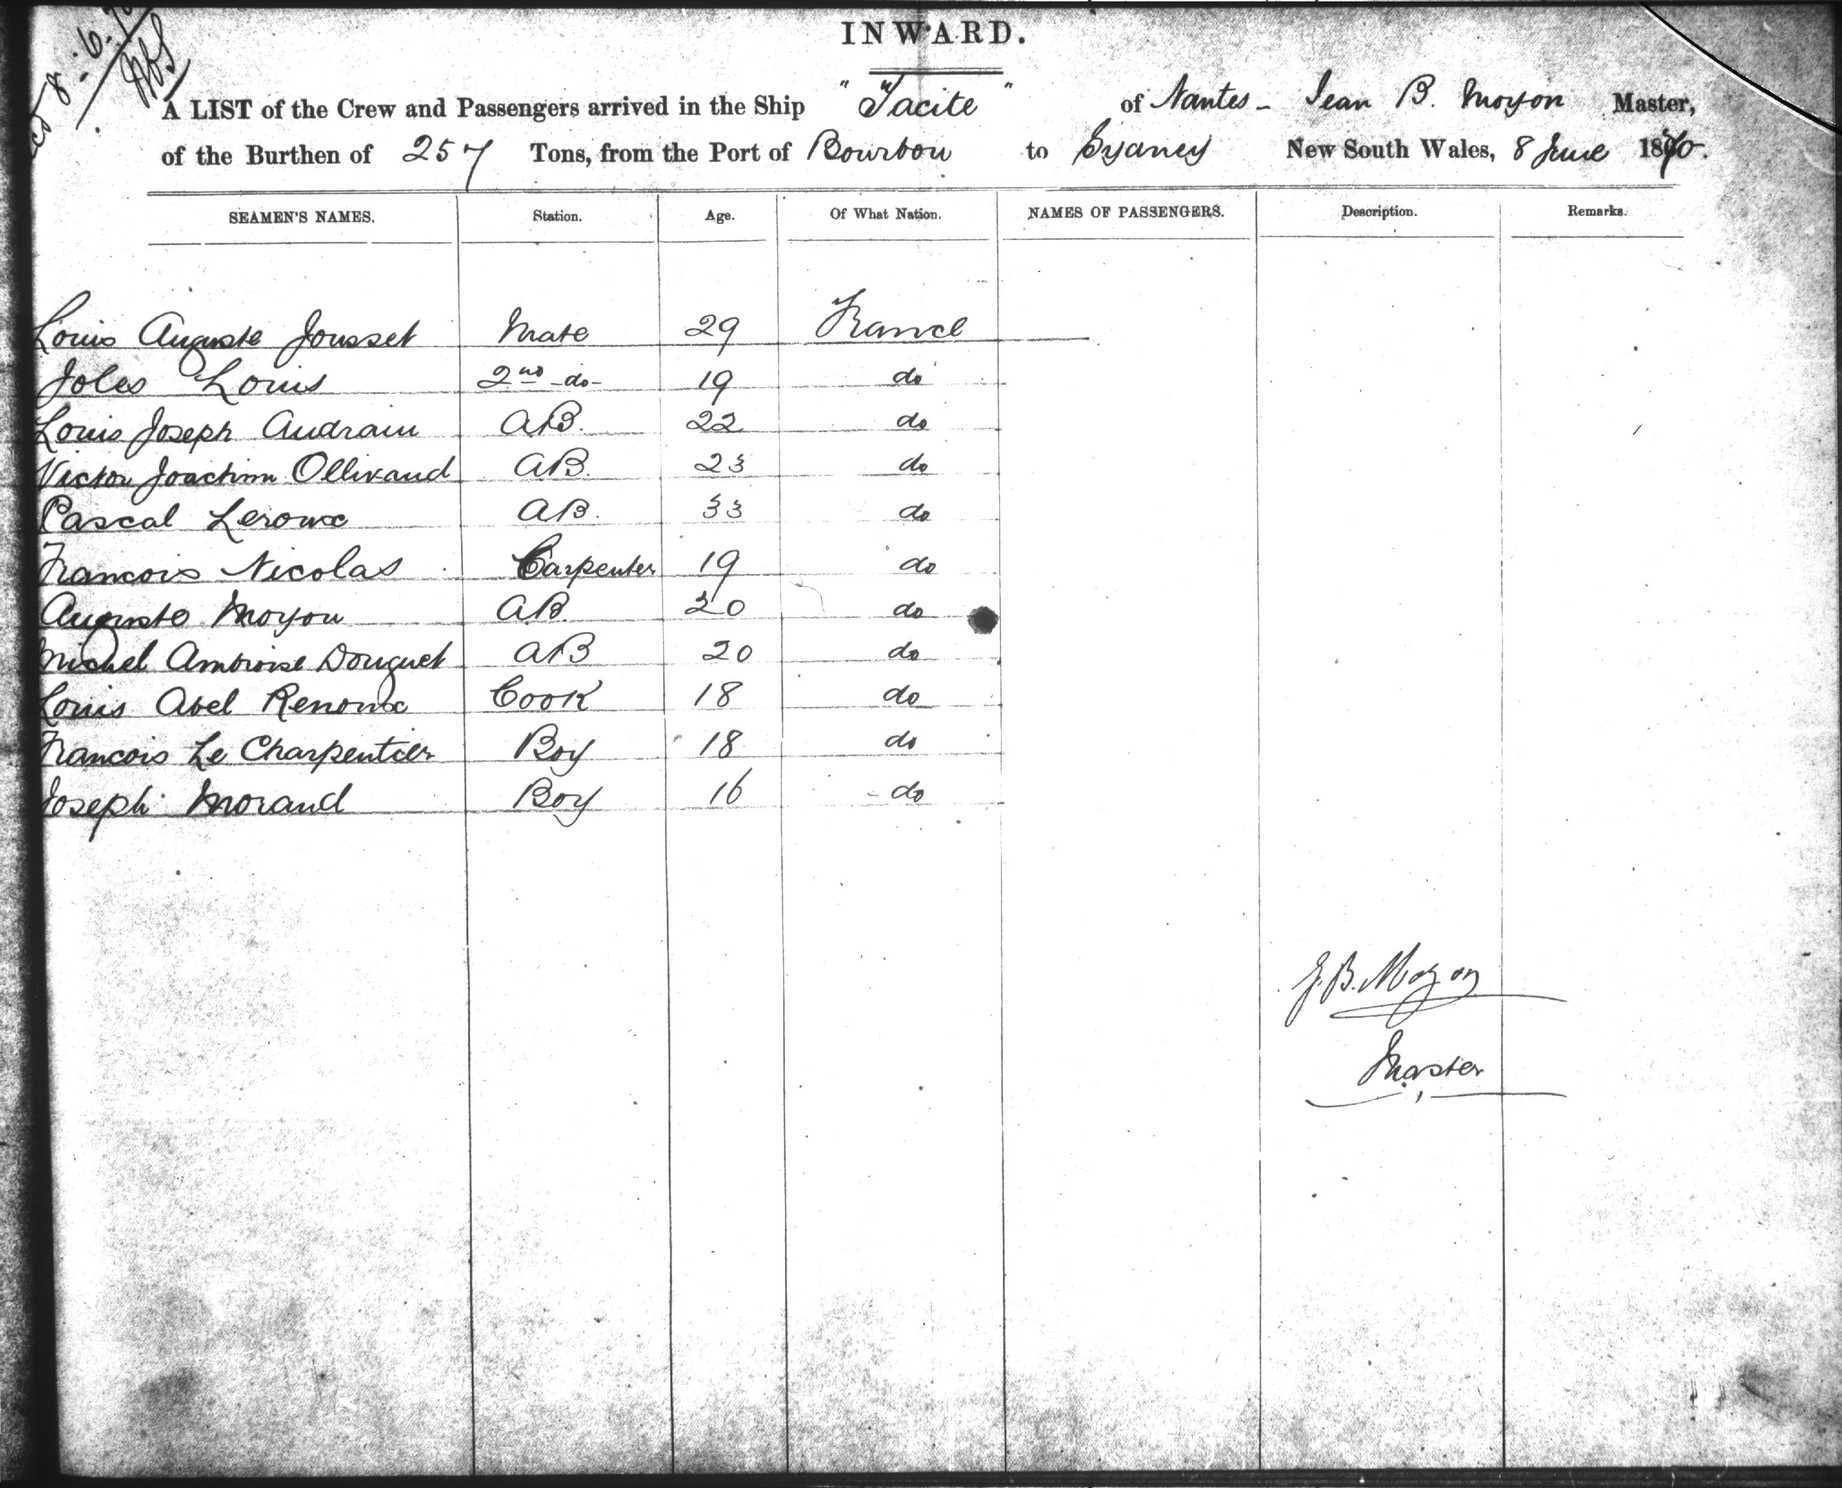 8.6.70
INWARD.
A LIST of the Crew and Passengers arrived in the Ship "Tacite" of Nantes - Jean B. Moyon Master,
of the Burthen of 257 Tons, from the Port of Bourbon to Sydney New South Wales, 8 June 1870.
SEAMEN'S NAMES. Station. Age. Of What Nation. NAMES OF PASSENGERS. Description. Remarks.
Louis Auguste Jousset Mate 29 France
Joles Louis 2nd do 19 do
Louis Joseph Audrain AB. 22 do
Victor Joachim Ollivaud AB. 23 do
Pascal Leroux AB. 33 do
Francois Nicolas Carpenter 19 do
Auguste Moyon AB. 20 do
Michel Ambroise Douguet AB 20 do
Louis Abel Renoux Cook 18 do
Francois Le Charpentier Boy 18 do
Joseph Morand Boy 16 do
J. B. Moyon
Master